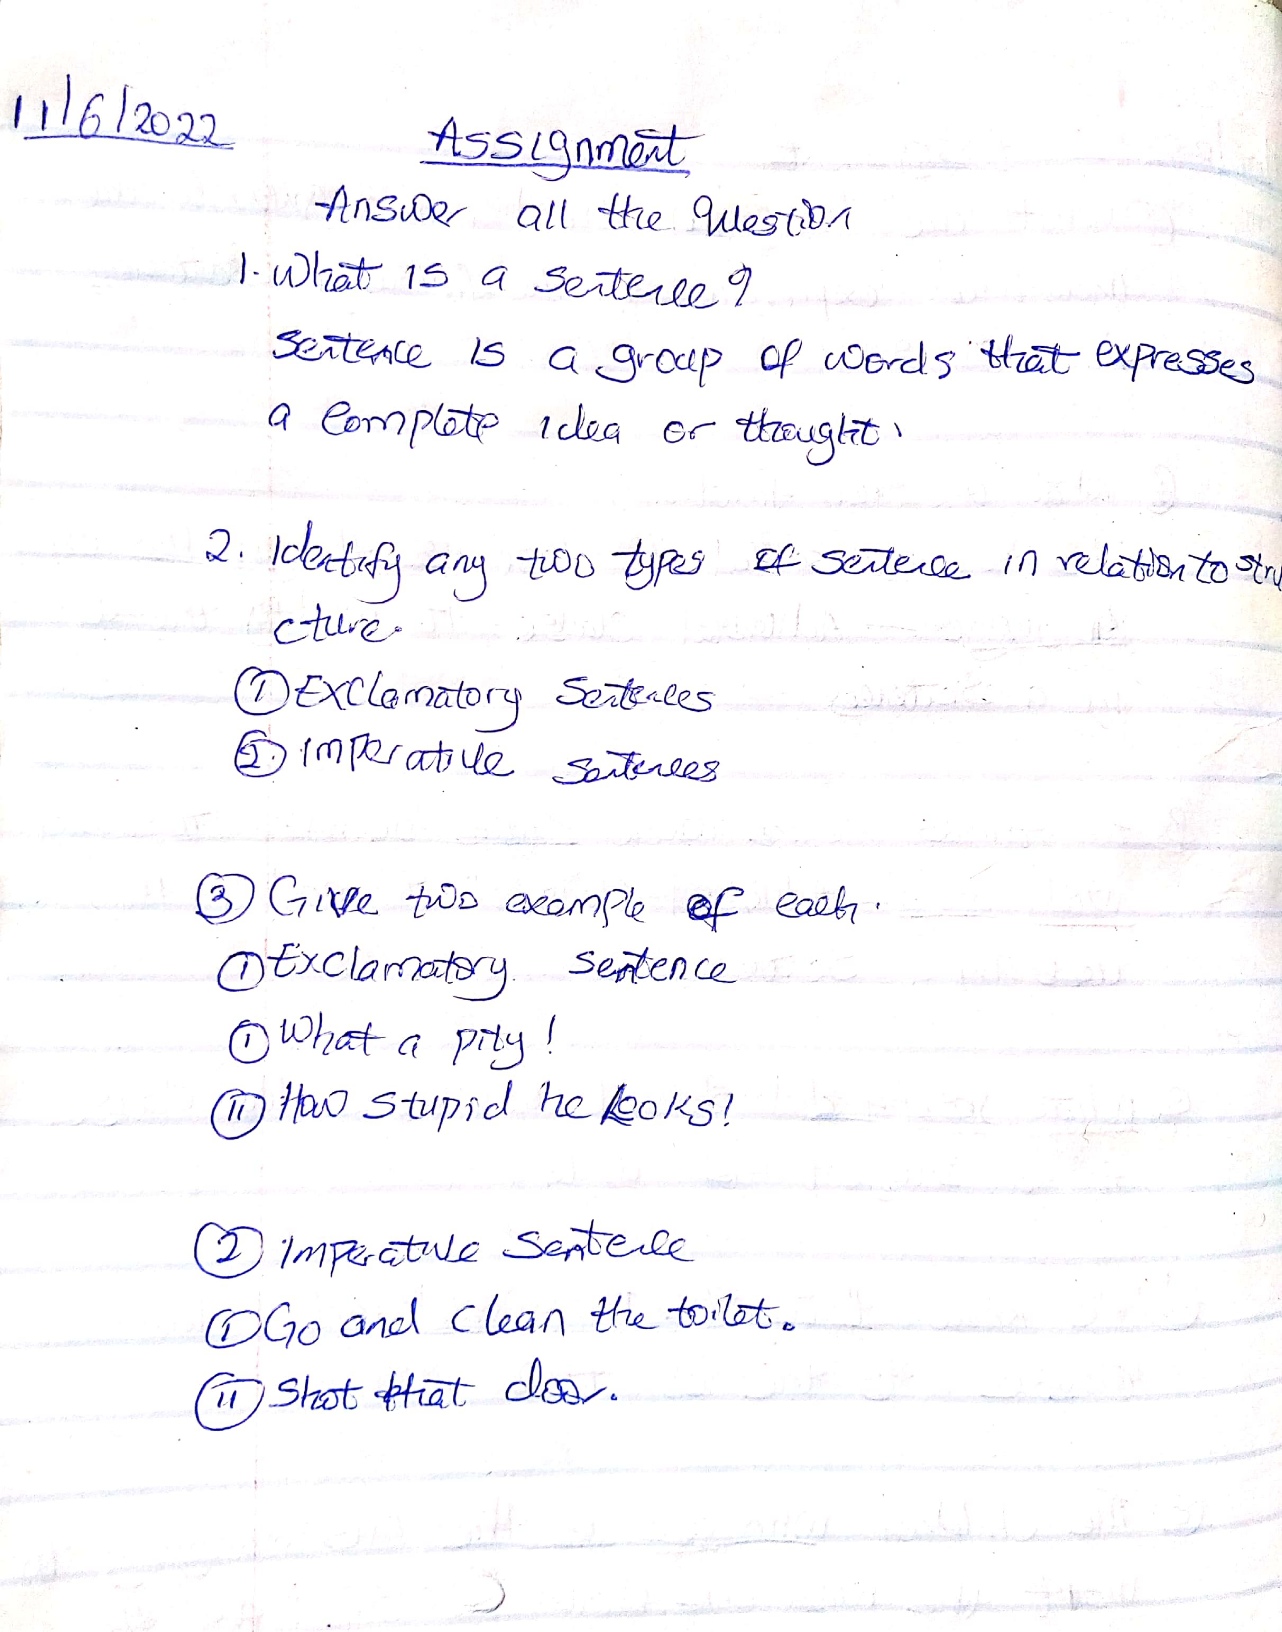 11/6/2022
Assignment
Answer all the Question
1. What is a sentence?
Sentence is a group of words that expresses
a complete idea or thought.
2. Identify any two types of sentence in relation to stru
cture.
① Exclamatory Sentences
②. imperative sentences
③ Give two example of each.
① Exclamatory sentence
① What a pity!
⑪ How stupid he looks!
② imperative sentence
① Go and clean the toilet.
⑪ Shot that door.